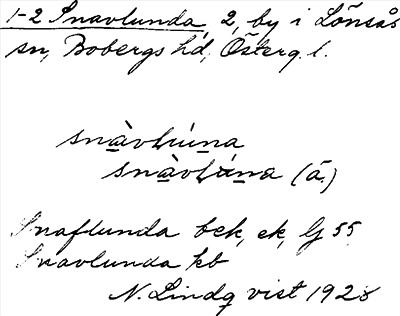 1-2 Snavlunda, 2, by i Lönsås
sn, Bobergs hd, Österg. l.
snàvlùna
snàvlúna (ä.)
Snaflunda bek, ek, Gf 55
Snavlunda kb
N. Lindq vist 1928